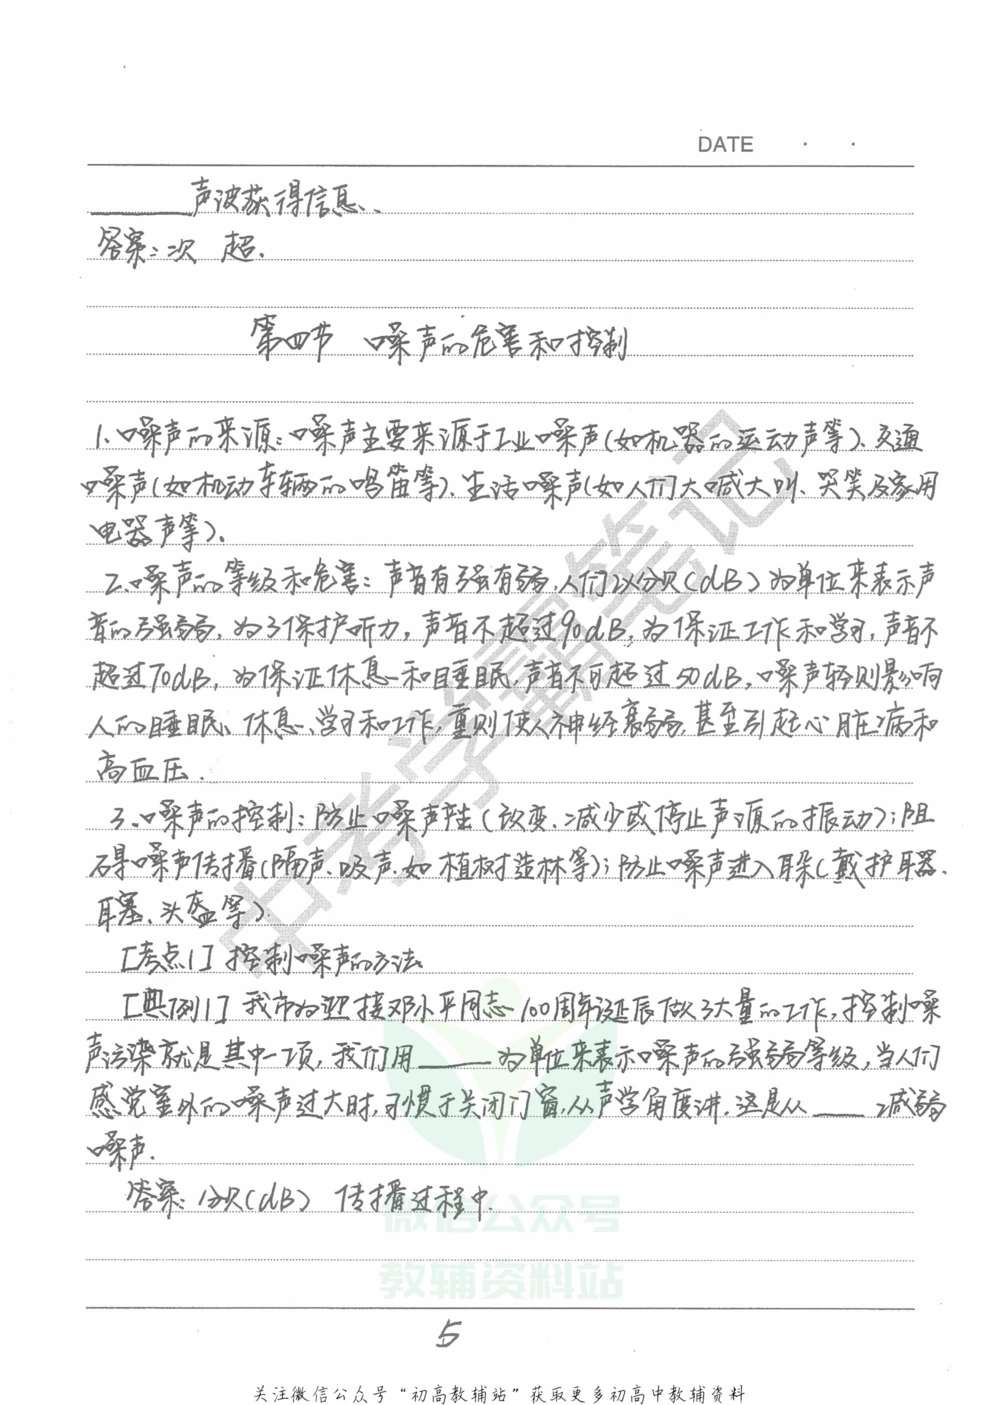 DATE · ·
______声波获得信息、
答案：次 超.
第四节 噪声的危害和控制
1.噪声的来源：噪声主要来源于工业噪声(如机器的运动声等)、交通
噪声(如机动车辆的鸣笛等)、生活噪声(如人们大喊大叫、哭笑及家用
电器声等).
2.噪声的等级和危害：声音有强有弱,人们以分贝(dB)为单位来表示声
音的强弱,为了保护听力,声音不超过90dB,为保证工作和学习,声音不
超过70dB,为保证休息和睡眠,声音不可超过50dB.噪声轻则影响
人的睡眠、休息、学习和工作,重则使人神经衰弱,甚至引起心脏病和
高血压.
3.噪声的控制：防止噪声产生(改变、减少或停止声源的振动)；阻
碍噪声传播(隔声、吸声、如植树造林等)；防止噪声进入耳朵(戴护耳器、
耳塞、头盔等).
[考点1] 控制噪声的方法
[典例1] 我市为迎接邓小平同志100周年诞辰做了大量的工作,控制噪
声污染就是其中一项,我们用____为单位来表示噪声的强弱等级,当人们
感觉室外的噪声过大时,习惯于关闭门窗,从声学角度讲,这是从____减弱
噪声.
答案：分贝(dB) 传播过程中.
中考学霸笔记
微信公众号
教辅资料站
5
关注微信公众号“初高教辅站”获取更多初高中教辅资料